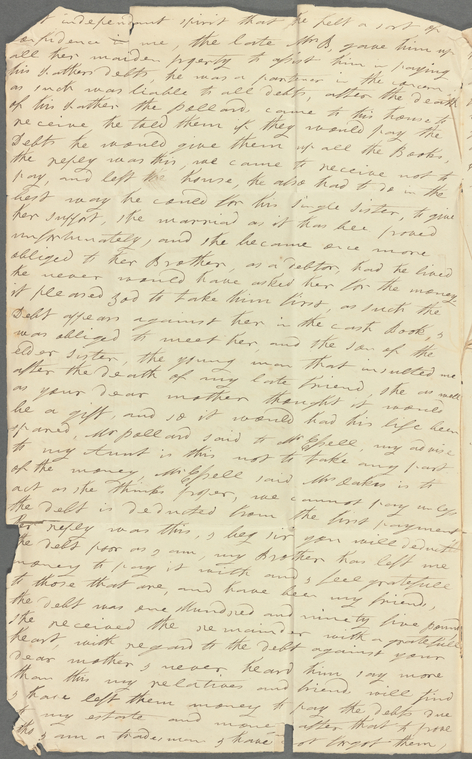 t independant spirit that he felt a sort of
confidence in me, the late Mr B. gave him up
all her maiden property to assist him in paying
his Fathers Debts, he was a partner in the concern,
as such was liable to all debts, after the death
of his Father the Pollard, came to his house to
receive he told them if they would pay the
Debts he would give them up all the Books,
the reply was this, we came to receive not to
pay, and left the House, he also had to do in the
best way he could for his single sister, to give
her support, she married as it has bee proved
unfortunately, and she became once more
obliged to her Brother, as a debtor, had he lived
he never would have asked her for the money
it pleased God to take him first, as such the
Debt appears against her in the Cash Book, I
was obliged to meet her, and the son of the
elder Sister, the young man that insulted me
after the death of my late Friend she as well
as your dear mother thought it would
be a gift, and so it would had his life been
spared, Mr Pollard said to Mr my advise
to my Aunt is this not to take any part
of the money Mr said Mrs is to
act as she thinks proper, we cannot pay unless
the debt is deducted from the first payment
her reply was this, I beg sir you will deduct
the debt poor as I am, my Brother has left me
money to pay it with and I feel gratefull
to those that are, and have been my friend,
the debt was one Hundred and ninety five pound
she received the remainder with a gratefull
heart, with regard to the debt against your
dear mother I never heard him say more
than this my relatives and friend will find
I have left them money to pay the debts due
to my estate and more after that to prove
tho I am a tradesman I have not forgot them,